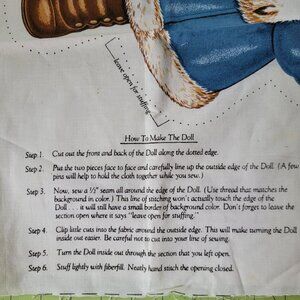 leave open for stuffing
How To Make The Doll
Step 1. Cut out the front and back of the Doll along the dotted edge.
Step 2. Put the two pieces face to face and carefully line up the outside edge of the Doll. (A few
pins will help to hold the cloth together while you sew.)
Step 3. Now, sew a ½" seam all around the edge of the Doll. (Use thread that matches the
background in color.) This line of stitching won't actually touch the edge of the
Doll . . . it will still have a small border of background color. Don't forget to leave the
section open where it says "leave open for stuffing."
Step 4. Clip little cuts into the fabric around the outside edge. This will make turning the Doll
inside out easier. Be careful not to cut into your line of sewing.
Step 5. Turn the Doll inside out through the section that you left open.
Step 6. Stuff lightly with fiberfill. Neatly hand stitch the opening closed.